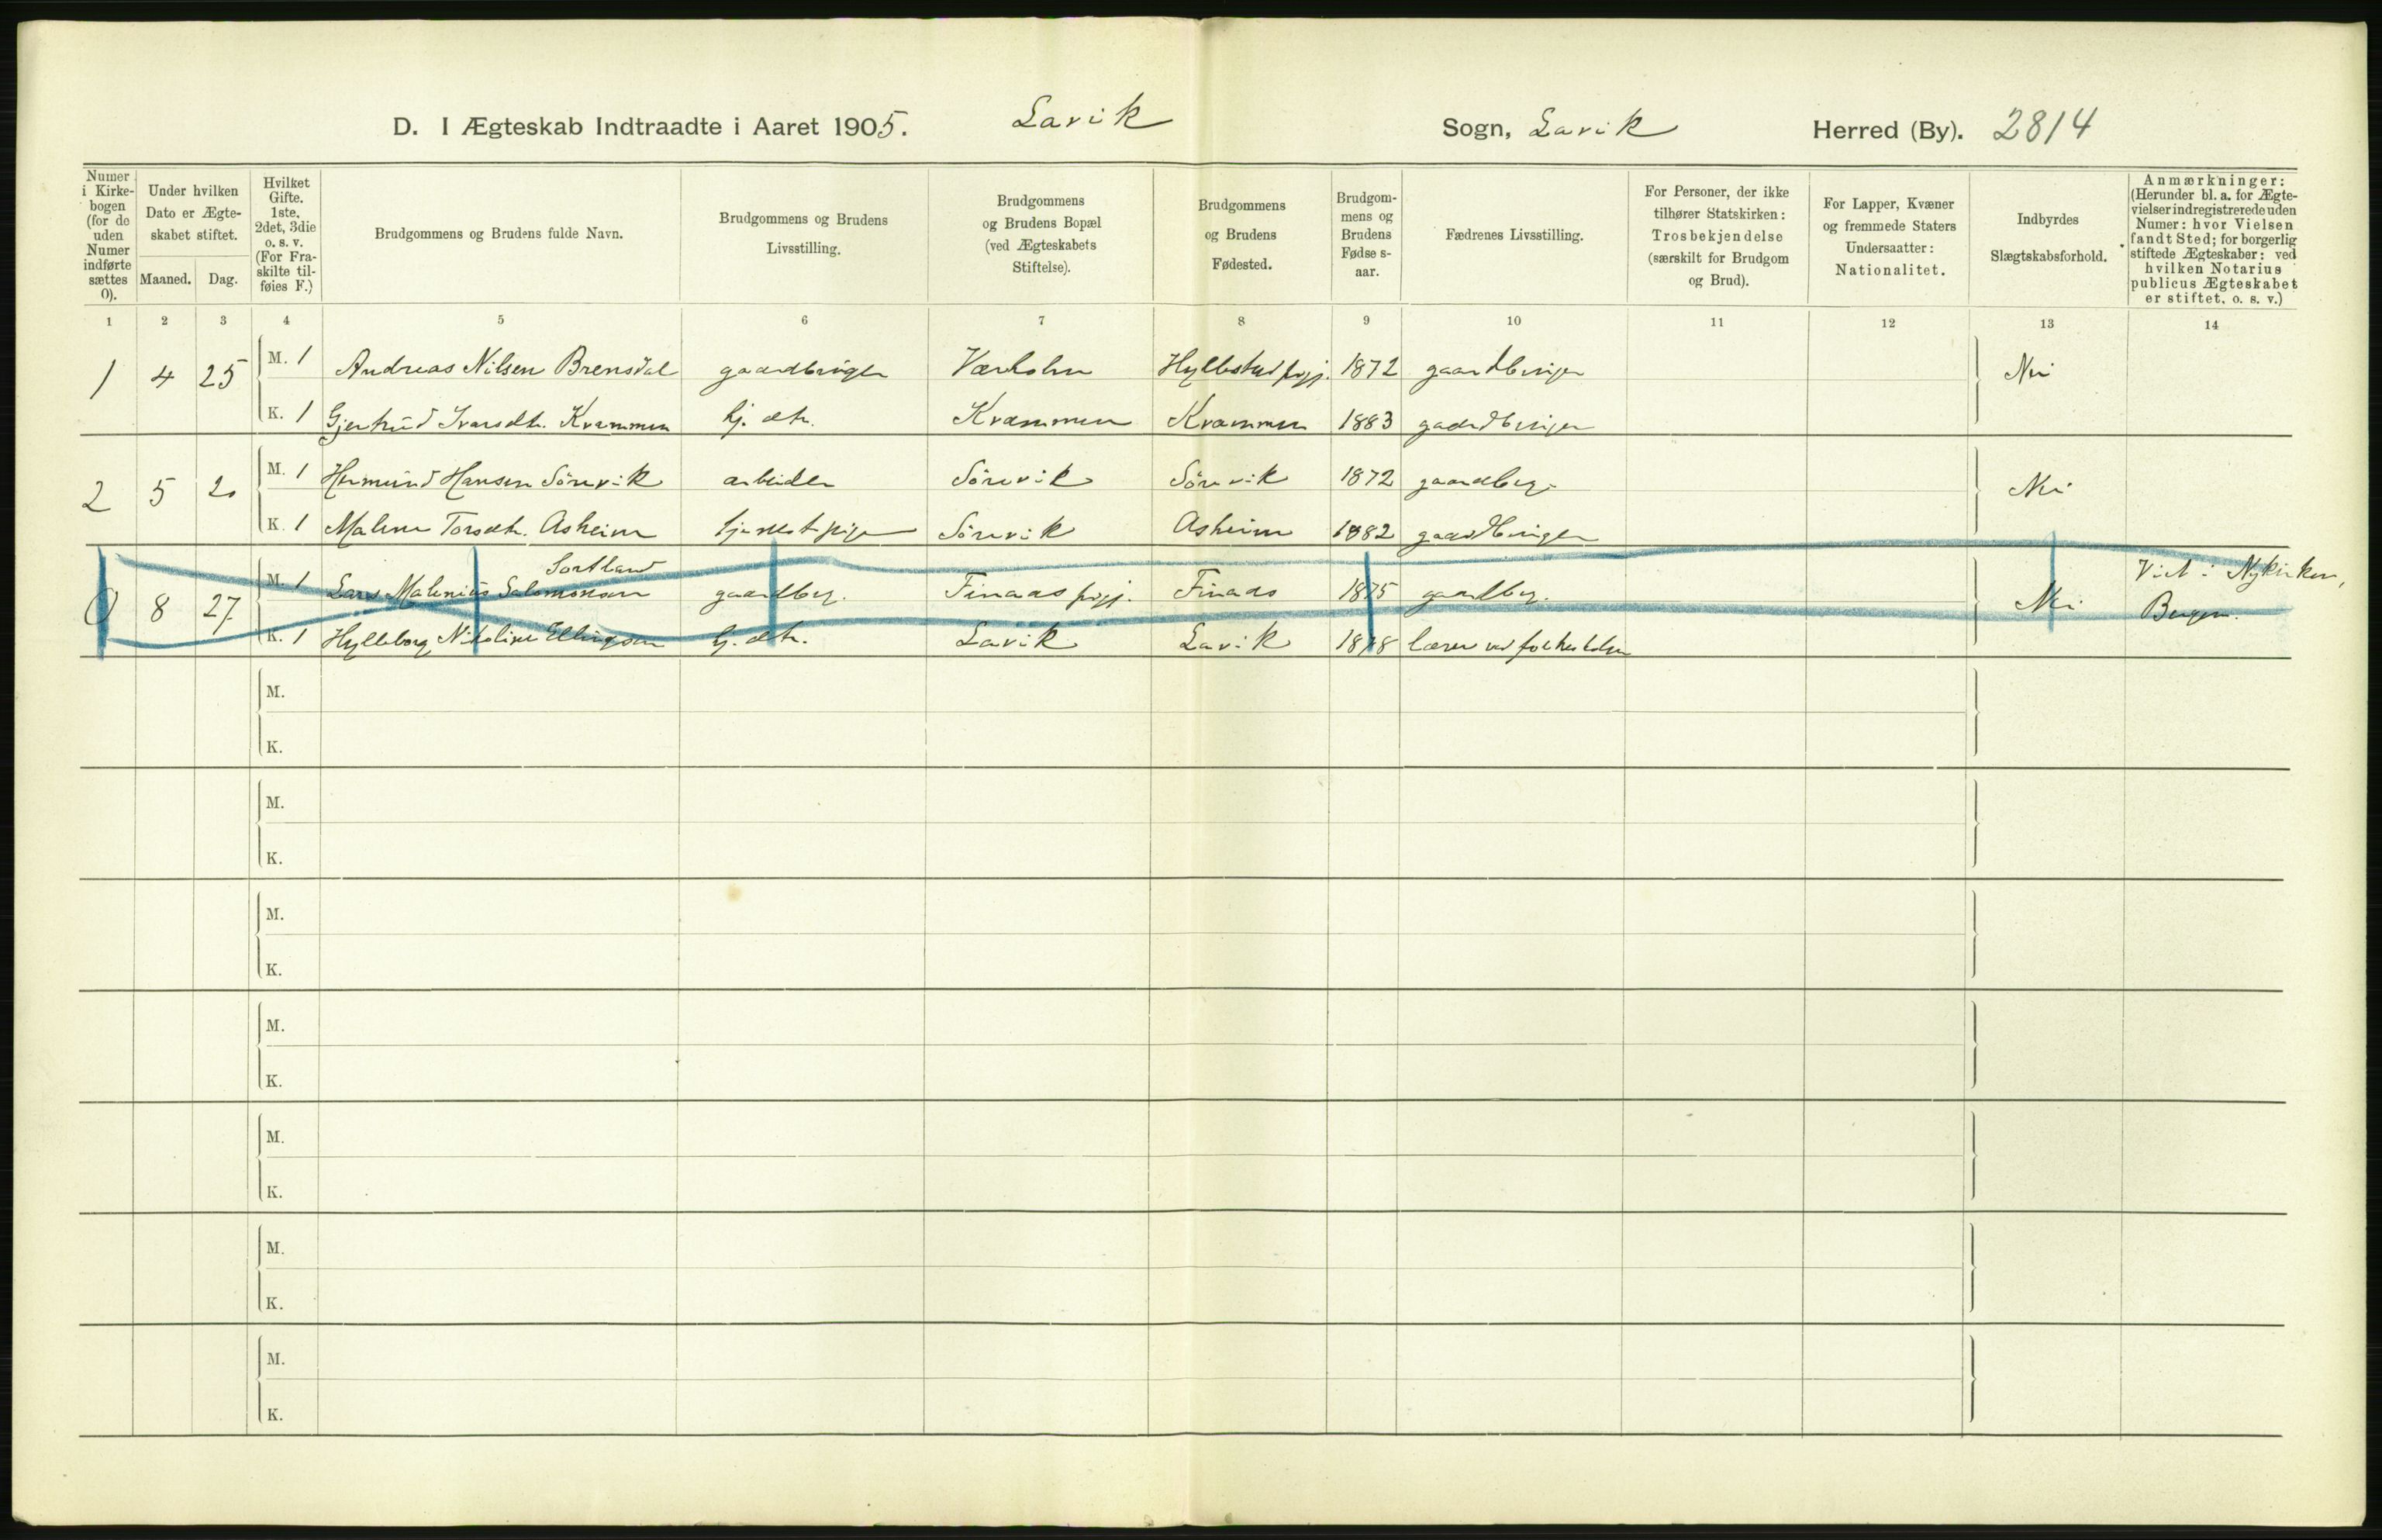 D. I Ægteskab Indtraadte i Aaret 1905. Lavik Sogn, Lavik Herred (By). 2814
Numer i Kirkebogen (for de uden Numer indførte sættes 0).
Under hvilken Dato er Ægteskabet stiftet.
Maaned. Dag.
Hvilket Gifte. 1ste, 2det, 3die o. s. v. (For Fraskilte tilføies F.)
Brudgommens og Brudens fulde Navn.
Brudgommens og Brudens Livsstilling.
Brudgommens og Brudens Bopæl (ved Ægteskabets Stiftelse).
Brudgommens og Brudens Fødested.
Brudgommens og Brudens Fødselsaar.
Fædrenes Livsstilling.
For Personer, der ikke tilhører Statskirken: Trosbekjendelse (særskilt for Brudgom og Brud).
For Lapper, Kvæner og fremmede Staters Undersaatter: Nationalitet.
Indbyrdes Slægtskabsforhold.
Anmærkninger: (Herunder bl. a. for Ægtevielser indregistrerede uden Numer: hvor Vielsen fandt Sted; for borgerlig stiftede Ægteskaber: ved hvilken Notarius publicus Ægteskabet er stiftet, o. s. v.)
1 2 3 4 5 6 7 8 9 10 11 12 13 14
1 4 25 M. 1 Andreas Nilsen Brensdal gaardbruger Værholm Hyllestad prgj. 1872 gaardbruger Nei
K. 1 Gjertrud Ivarsdtr. Krammen hj. dtr. Krammen Krammen 1883 gaardbruger
2 5 20 M. 1 Hermund Hansen Sörevik arbeider Sörevik Sörevik 1872 gaardbrg. Nei
K. 1 Malene Torsdtr. Asheim tjenestpige Sörevik Asheim 1882 gaardbruger
Sortland
0 8 27. M. 1 Lars Malenius Salomonsen gaardbrg. Finaas prgj. Finaas 1875 gaardbrg. Nei Viet i Nykirken,
Bergen.
K. 1 Hylleborg Nikoline Ellingsen hj. dtr. Lavik Lavik 1878 lærer ved folkeskolen
M.
K.
M.
K.
M.
K.
M.
K.
M.
K.
M.
K.
M.
K.